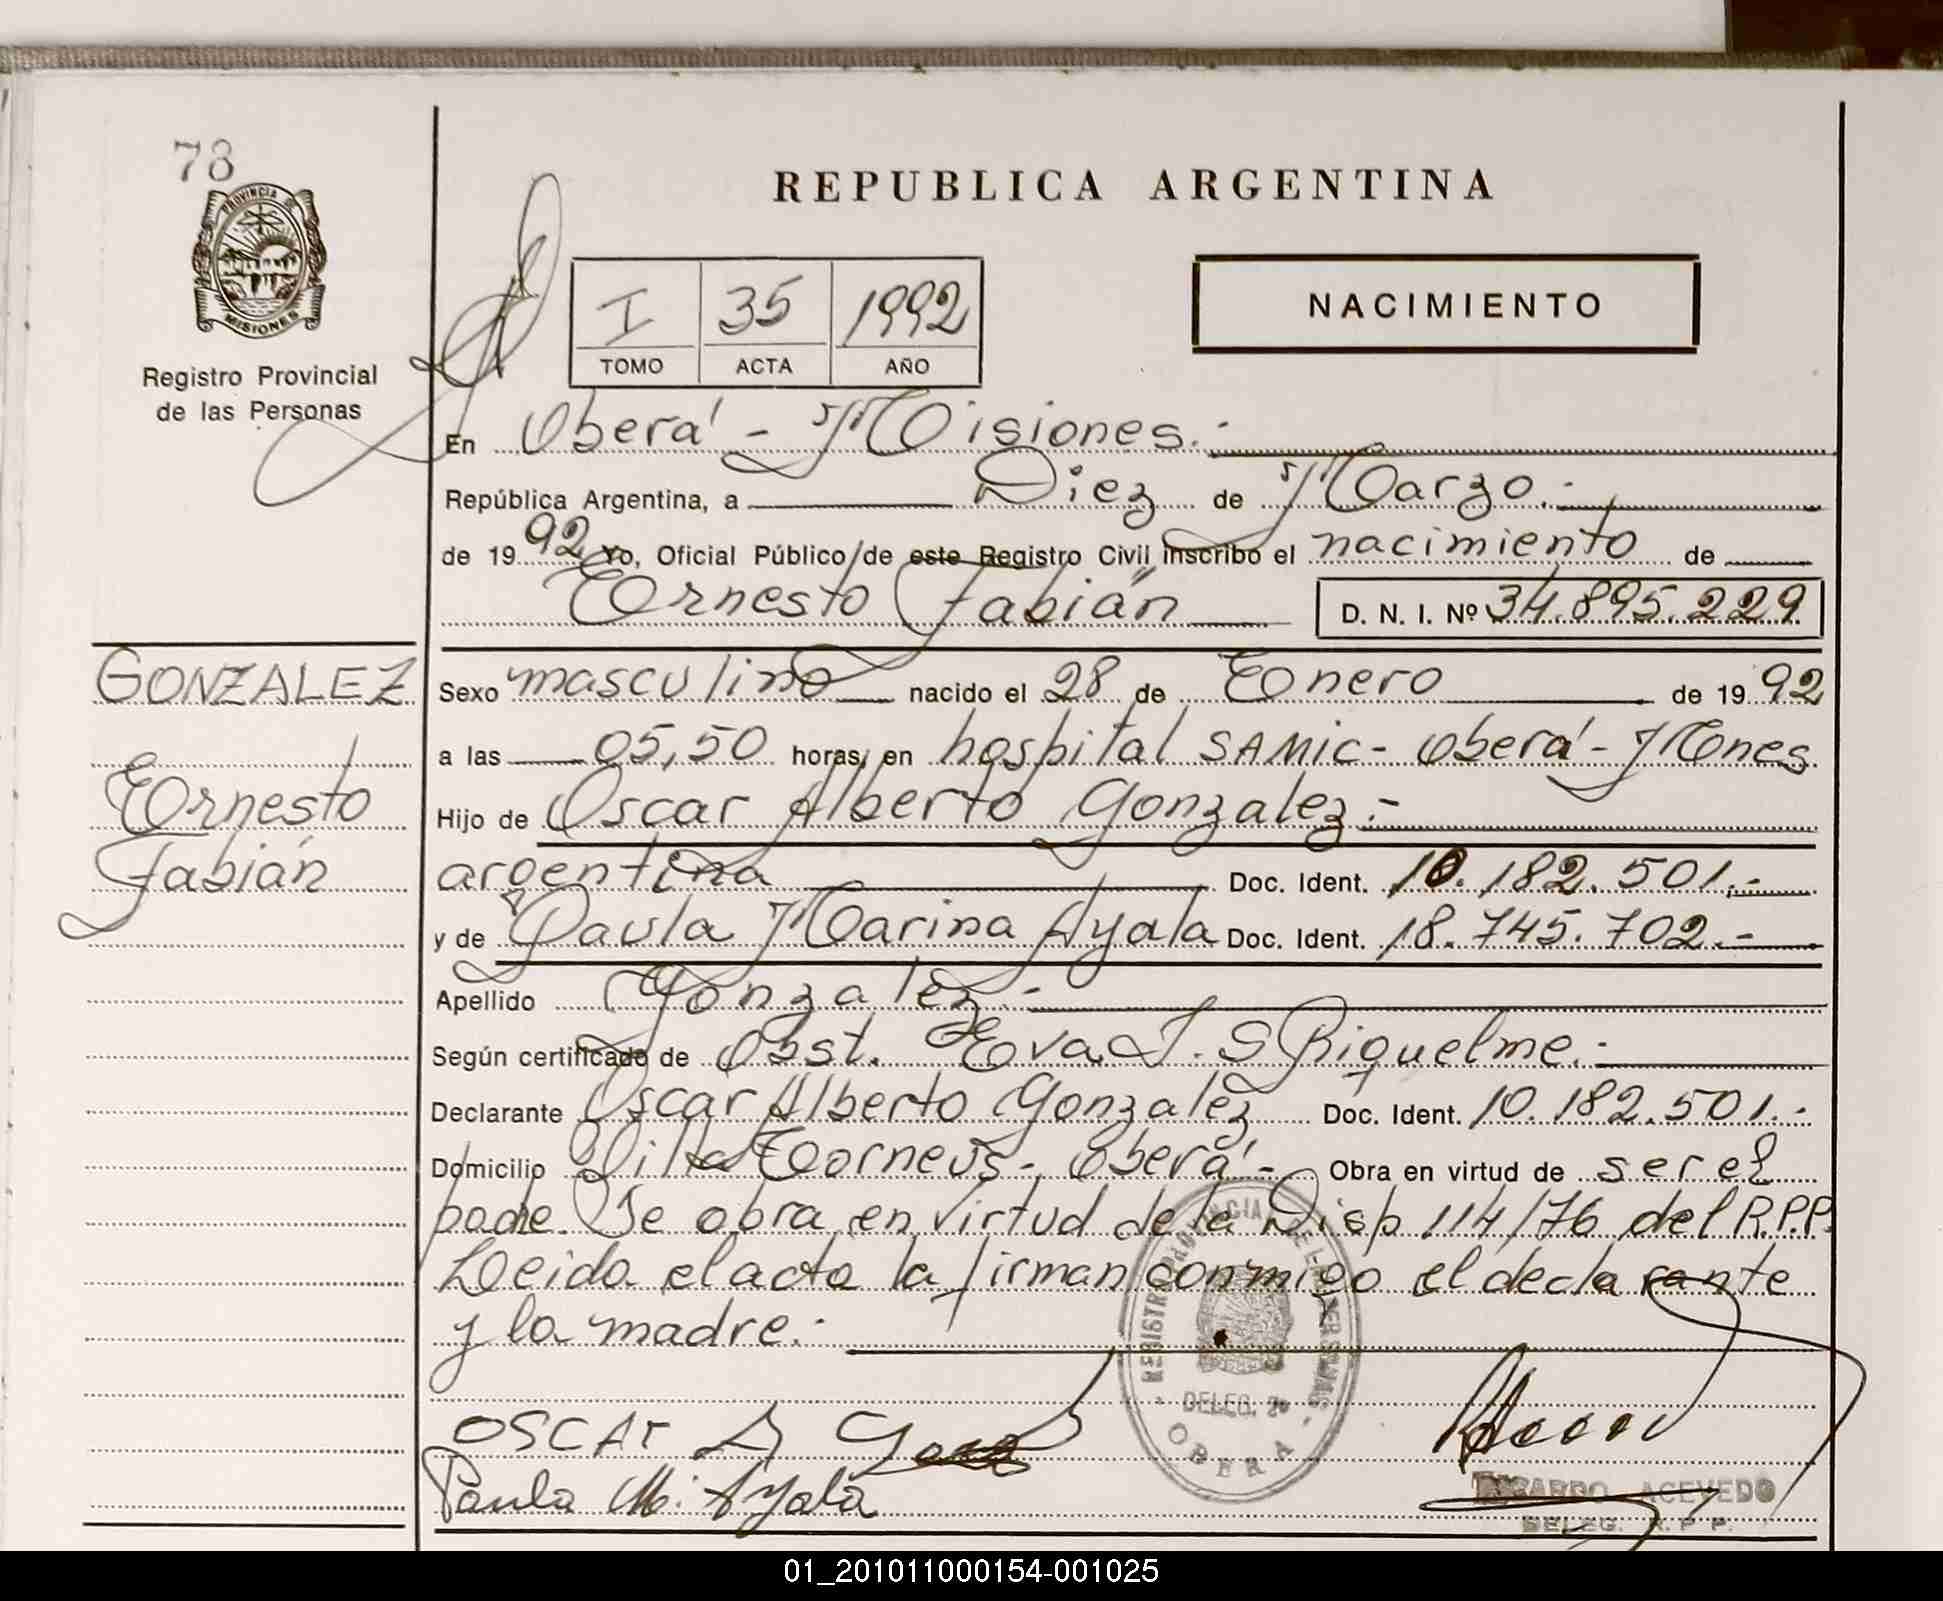 78
PROVINCIA D
MISIONES
Registro Provincial
de las Personas
REPUBLICA ARGENTINA
I 35 1992
TOMO ACTA AÑO
NACIMIENTO
En Oberá - Misiones.-
República Argentina, a Diez de Marzo.-
de 1992 Yo, Oficial Público de este Registro Civil inscribo el nacimiento de
Ernesto Fabián D. N. I. Nº 34.895.229
GONZALEZ
Ernesto
Fabián
Sexo masculino nacido el 28 de Enero de 1992
a las 05,50 horas, en hospital SAMIC - Oberá - Mones
Hijo de Oscar Alberto Gonzalez.-
argentina Doc. Ident. 10.182.501.-
y de Paula Marina Ayala Doc. Ident. 18.745.702.-
Apellido Gonzalez.-
Según certificado de Obst. Eva J. S Riquelme.-
Declarante Oscar Alberto Gonzalez Doc. Ident. 10.182.501.-
Domicilio Villa Torneus - Oberá - Obra en virtud de ser el
padre. Se obra en virtud de la Disp 114/76 del R.P.P.
Leida el acta la firman conmigo el declarante
y la madre.-
REGISTRO PROVINCIAL DE LAS PERSONAS
DELEG. 2ª
OBERA
OSCAr A Gonz
Paula M. Ayala
RICARDO ACEVEDO
DELEG. R. P. P.
01_201011000154-001025